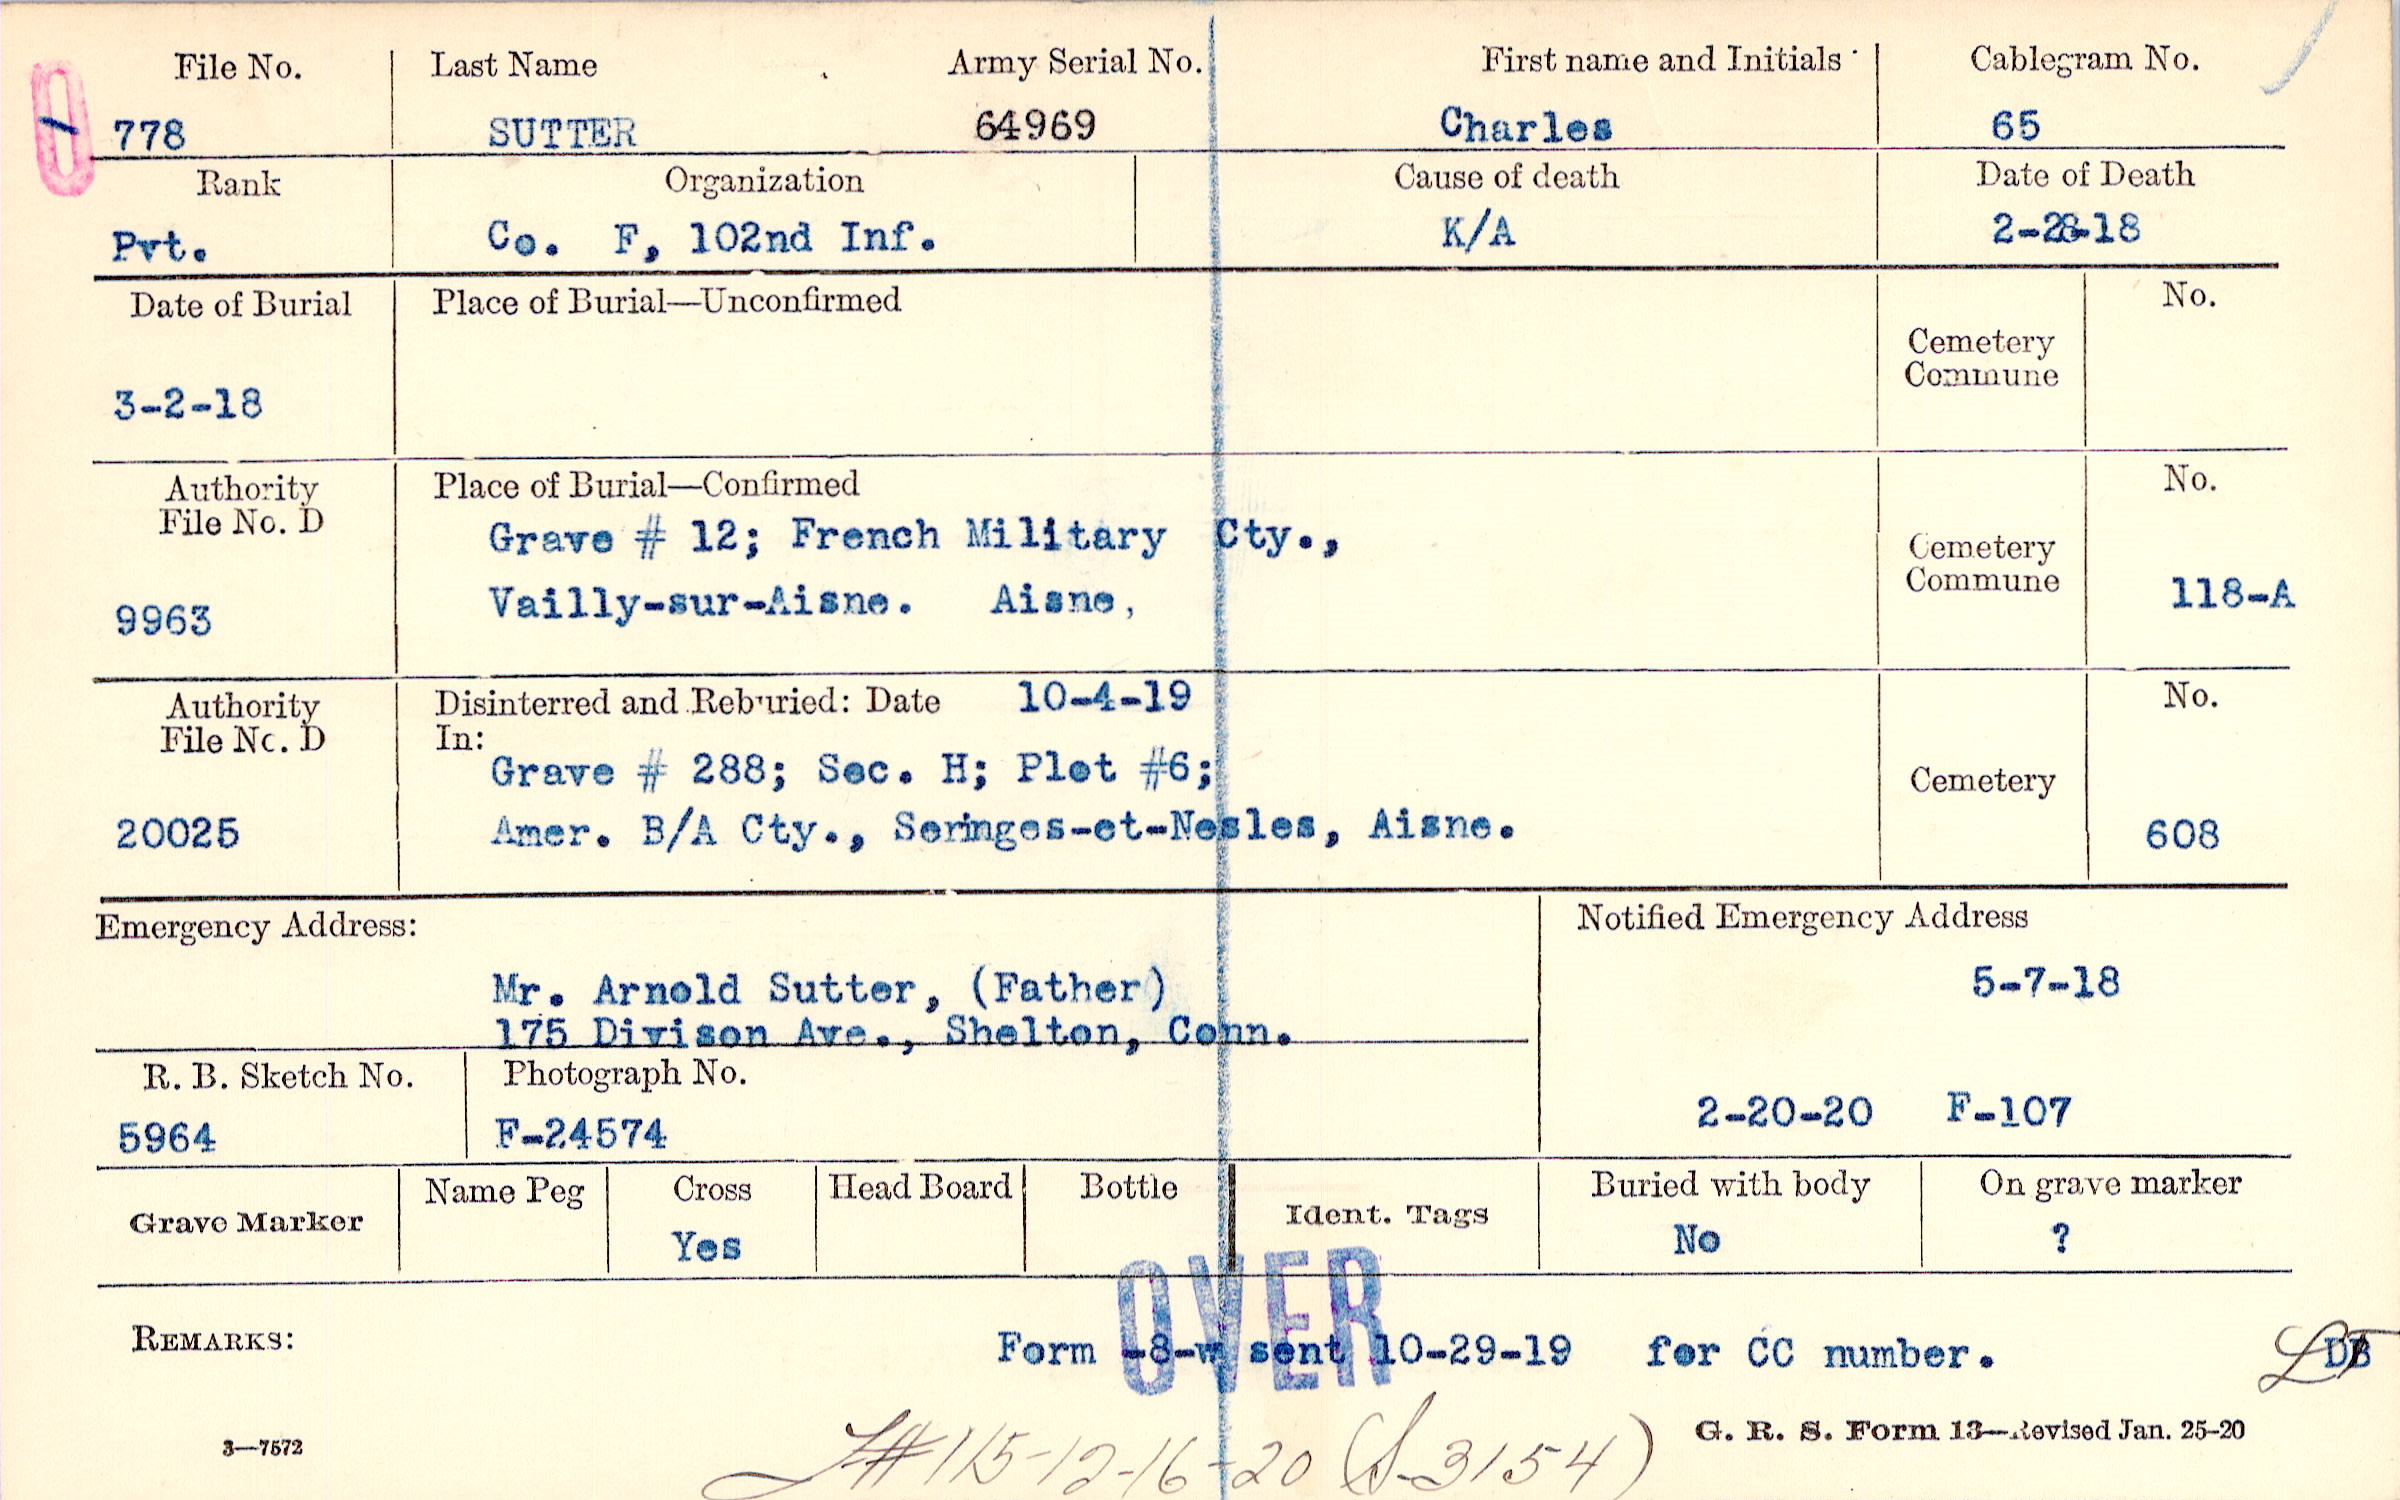 File No. Last Name Army Serial No. First name and Initials Cablegram No.
778 SUTTER 64969 Charles 65
Rank Organization Cause of death Date of Death
Pvt. Co. F, 102nd Inf. K/A 2-28-18
Date of Burial Place of Burial—Unconfirmed No.
Cemetery
Commune
3-2-18
Authority Place of Burial—Confirmed No.
File No. D
Grave # 12; French Military Cty.,
Cemetery
Commune 118-A
9963 Vailly-sur-Aisne. Aisne,
Authority Disinterred and Reburied: Date 10-4-19 No.
File No. D In:
Grave # 288; Sec. H; Plot #6;
Cemetery
20025 Amer. B/A Cty., Seringes-et-Nesles, Aisne. 608
Emergency Address: Notified Emergency Address
Mr. Arnold Sutter, (Father) 5-7-18
175 Divison Ave., Shelton, Conn.
R. B. Sketch No. Photograph No.
5964 F-24574 2-20-20 F-107
Grave Marker Name Peg Cross Head Board Bottle Ident. Tags Buried with body On grave marker
Yes No ?
OVER
REMARKS: Form -8-w sent 10-29-19 for CC number. DB
3—7572 G. R. S. Form 13—Revised Jan. 25-20
#115-12-16-20 (S-3154)